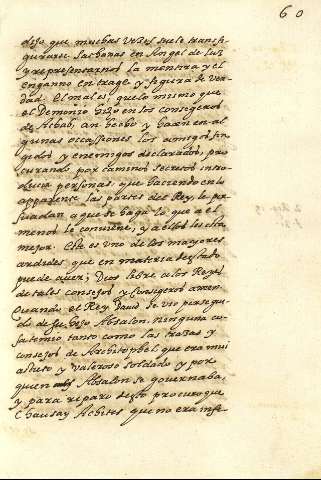 60
dijo que muchas vezes suele transfi-
gurarse Sathanas en Angel de luz
y representarnos la mentira y el
enganno en trage y figura de ver-
dad. El mal es, que lo mismo que
el Demonio hizo en los consegeros
de Achab, an hecho y hazen en al
gunas occassiones los amigos fin
gidos y enemigos declarados, pro
curando por caminos secretos intro
ducir personas, que haziendo en lo
apparente las partes del Rey, le per
suadan a que se haga lo que a el
menos le conviene, y a ellos les esta
mejor. Este es uno de los mayores
ardides que en materia de estado
puede auer; Dios libre a los Reyes
de tales consejos y Consegeros amen.
Cuando el Rey Dauid se vio persegui
do de su hijo Absalon, ninguna co
sa temio tanto como las trazas y
consejos de Architophel que era mui
astuto y valeroso soldado y por
quien Absalon se gouernaba,
y para reparo desto procuro que
Chusay Achites que no era infe-